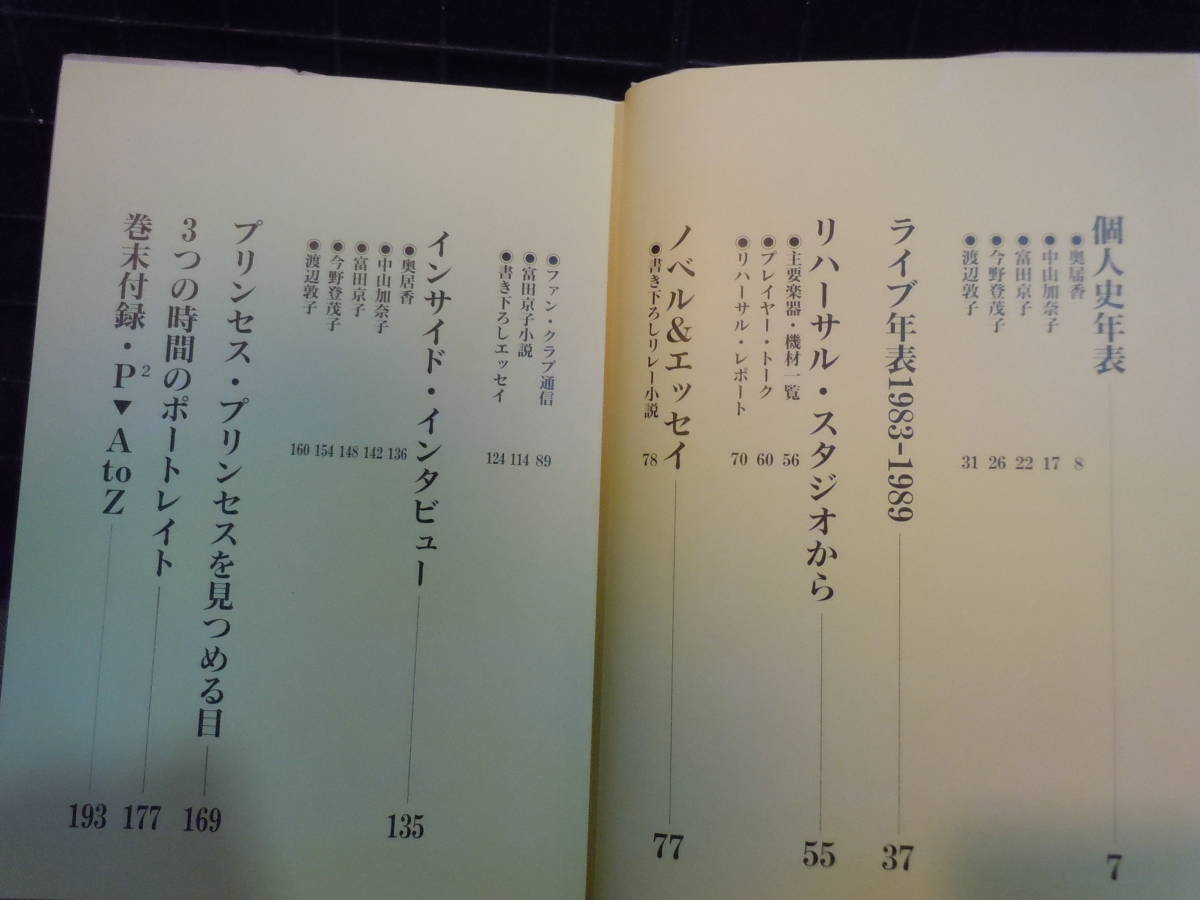 個人史年表 7
●奥居香 8
●中山加奈子 17
●富田京子 22
●今野登茂子 26
●渡辺敦子 31
ライブ年表1983-1989 37
リハーサル・スタジオから 55
●主要楽器・機材一覧 56
●プレイヤー・トーク 60
●リハーサル・レポート 70
ノベル&エッセイ 77
●書き下ろしリレー小説 78
●ファン・クラブ通信 89
●富田京子小説 114
●書き下ろしエッセイ 124
インサイド・インタビュー 135
●奥居香 136
●中山加奈子 142
●富田京子 148
●今野登茂子 154
●渡辺敦子 160
プリンセス・プリンセスを見つめる目 169
3つの時間のポートレイト 177
巻末付録・P²▼A to Z 193